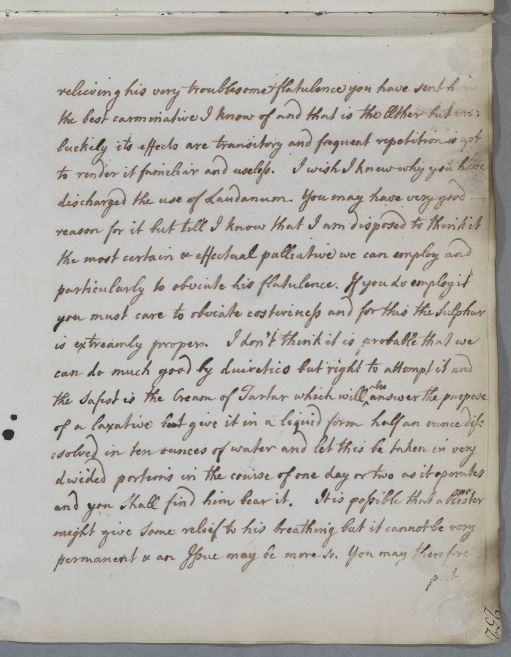 relieving his very troublesome flatulence you have sent him
the best carminative I know of and that is the Æther but un:
luckily its effects are transitory and frequent repetition is apt
to render it familiar and useless. I wish I knew why you have
discharged the use of Laudanum. You may have very good
reason for it but till I know that I am disposed to think it
the most certain & effectual palliative we can employ and
particularly to obviate his flatulence. If you do employ it
you must care to obviate costiveness and for this the Sulphur
is extreamly proper. I don't think it is probable that we
can do much good by diuretics but right to attempt it and
the safest is the Cream of Tartar which will also answer the purpose
of a laxative but give it in a liquid form half an ounce dis
:solved in ten ounces of water and let this be taken in very
divided portions in the course of one day or two as it operates
and you shall find him bear it. It is possible that a blister
might give some relief to his breathing but it cannot be very
permanent & an Issue may be more so. You may therefore
put
252